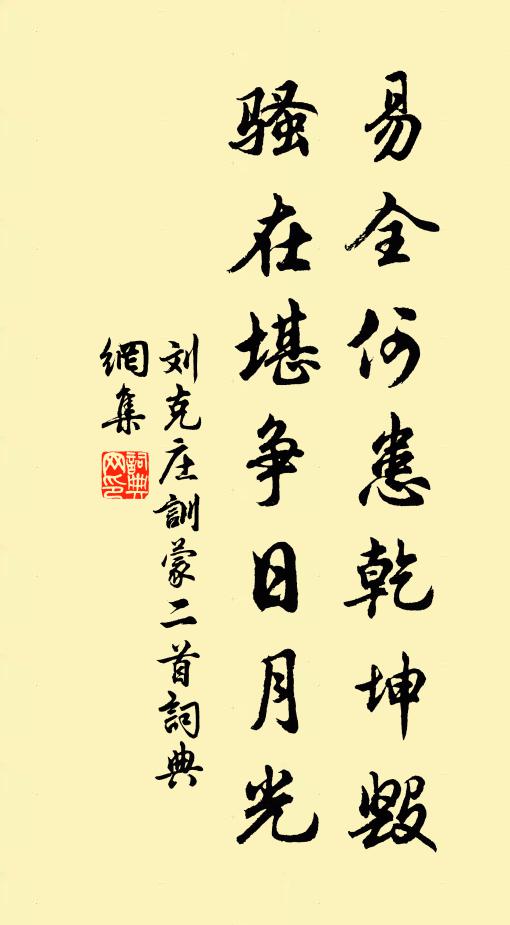 易全何患乾坤毀
騷在堪爭日月光
刘克庄訓蒙二首詞典
網集
詞典網印